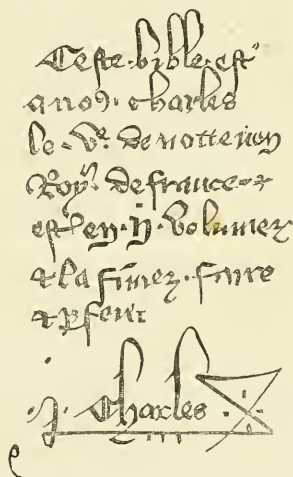 Ceste bible est
a no9. charles
le ve. de notre non
Roy. de france et
est en ii volumez
et la fimez. faire
et pfere
Charles